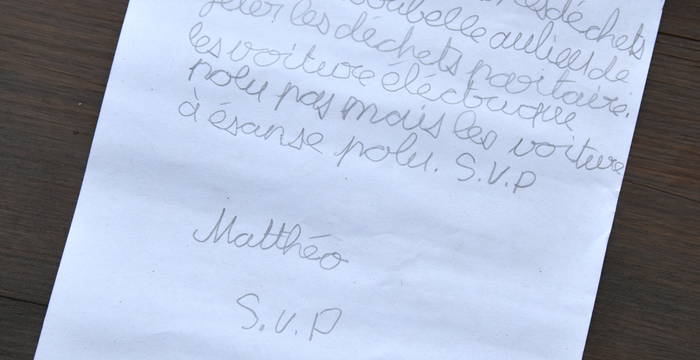 les déchets
poubelle au lieu de
jeter les déchets partaire.
les voiture éléctrique
polu pas mais les voiture
à ésanse polu. S.V.P
Matthéo
S.V.P